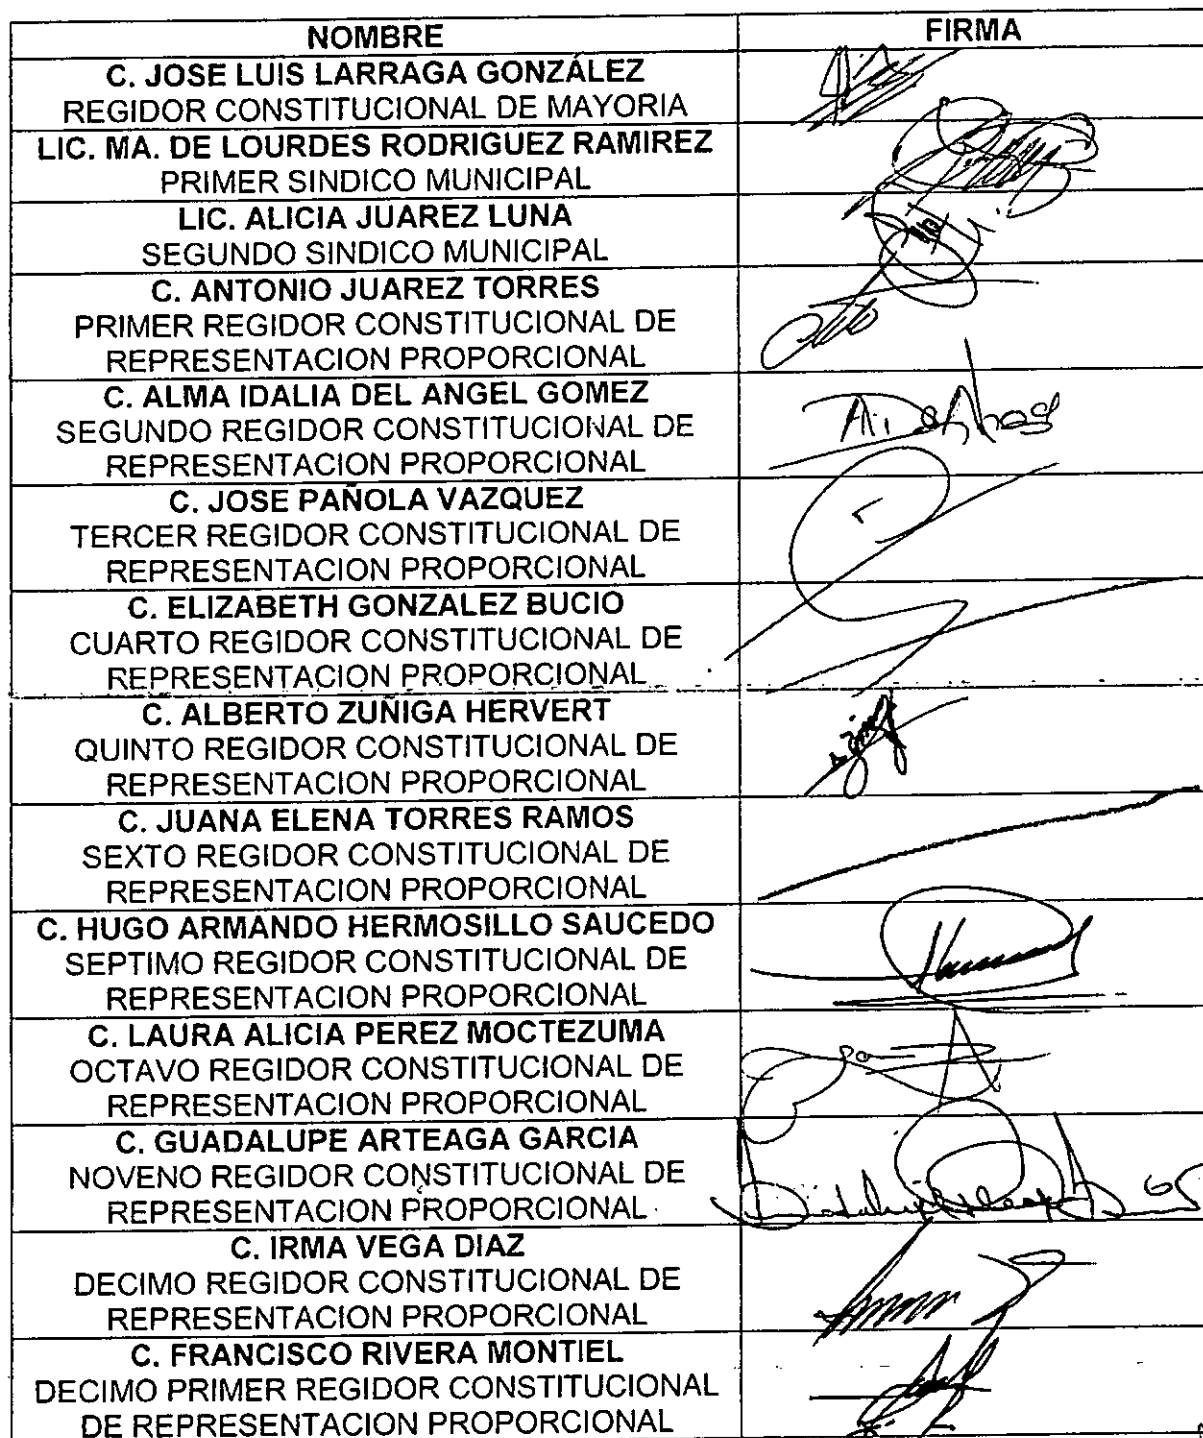 NOMBRE FIRMA
C. JOSE LUIS LARRAGA GONZÁLEZ
REGIDOR CONSTITUCIONAL DE MAYORIA
LIC. MA. DE LOURDES RODRIGUEZ RAMIREZ
PRIMER SINDICO MUNICIPAL
LIC. ALICIA JUAREZ LUNA
SEGUNDO SINDICO MUNICIPAL
C. ANTONIO JUAREZ TORRES
PRIMER REGIDOR CONSTITUCIONAL DE
REPRESENTACION PROPORCIONAL
C. ALMA IDALIA DEL ANGEL GOMEZ
SEGUNDO REGIDOR CONSTITUCIONAL DE
REPRESENTACION PROPORCIONAL
C. JOSE PAÑOLA VAZQUEZ
TERCER REGIDOR CONSTITUCIONAL DE
REPRESENTACION PROPORCIONAL
C. ELIZABETH GONZALEZ BUCIO
CUARTO REGIDOR CONSTITUCIONAL DE
REPRESENTACION PROPORCIONAL
C. ALBERTO ZUÑIGA HERVERT
QUINTO REGIDOR CONSTITUCIONAL DE
REPRESENTACION PROPORCIONAL
C. JUANA ELENA TORRES RAMOS
SEXTO REGIDOR CONSTITUCIONAL DE
REPRESENTACION PROPORCIONAL
C. HUGO ARMANDO HERMOSILLO SAUCEDO
SEPTIMO REGIDOR CONSTITUCIONAL DE
REPRESENTACION PROPORCIONAL
C. LAURA ALICIA PEREZ MOCTEZUMA
OCTAVO REGIDOR CONSTITUCIONAL DE
REPRESENTACION PROPORCIONAL
C. GUADALUPE ARTEAGA GARCIA
NOVENO REGIDOR CONSTITUCIONAL DE
REPRESENTACION PROPORCIONAL
C. IRMA VEGA DIAZ
DECIMO REGIDOR CONSTITUCIONAL DE
REPRESENTACION PROPORCIONAL
C. FRANCISCO RIVERA MONTIEL
DECIMO PRIMER REGIDOR CONSTITUCIONAL
DE REPRESENTACION PROPORCIONAL